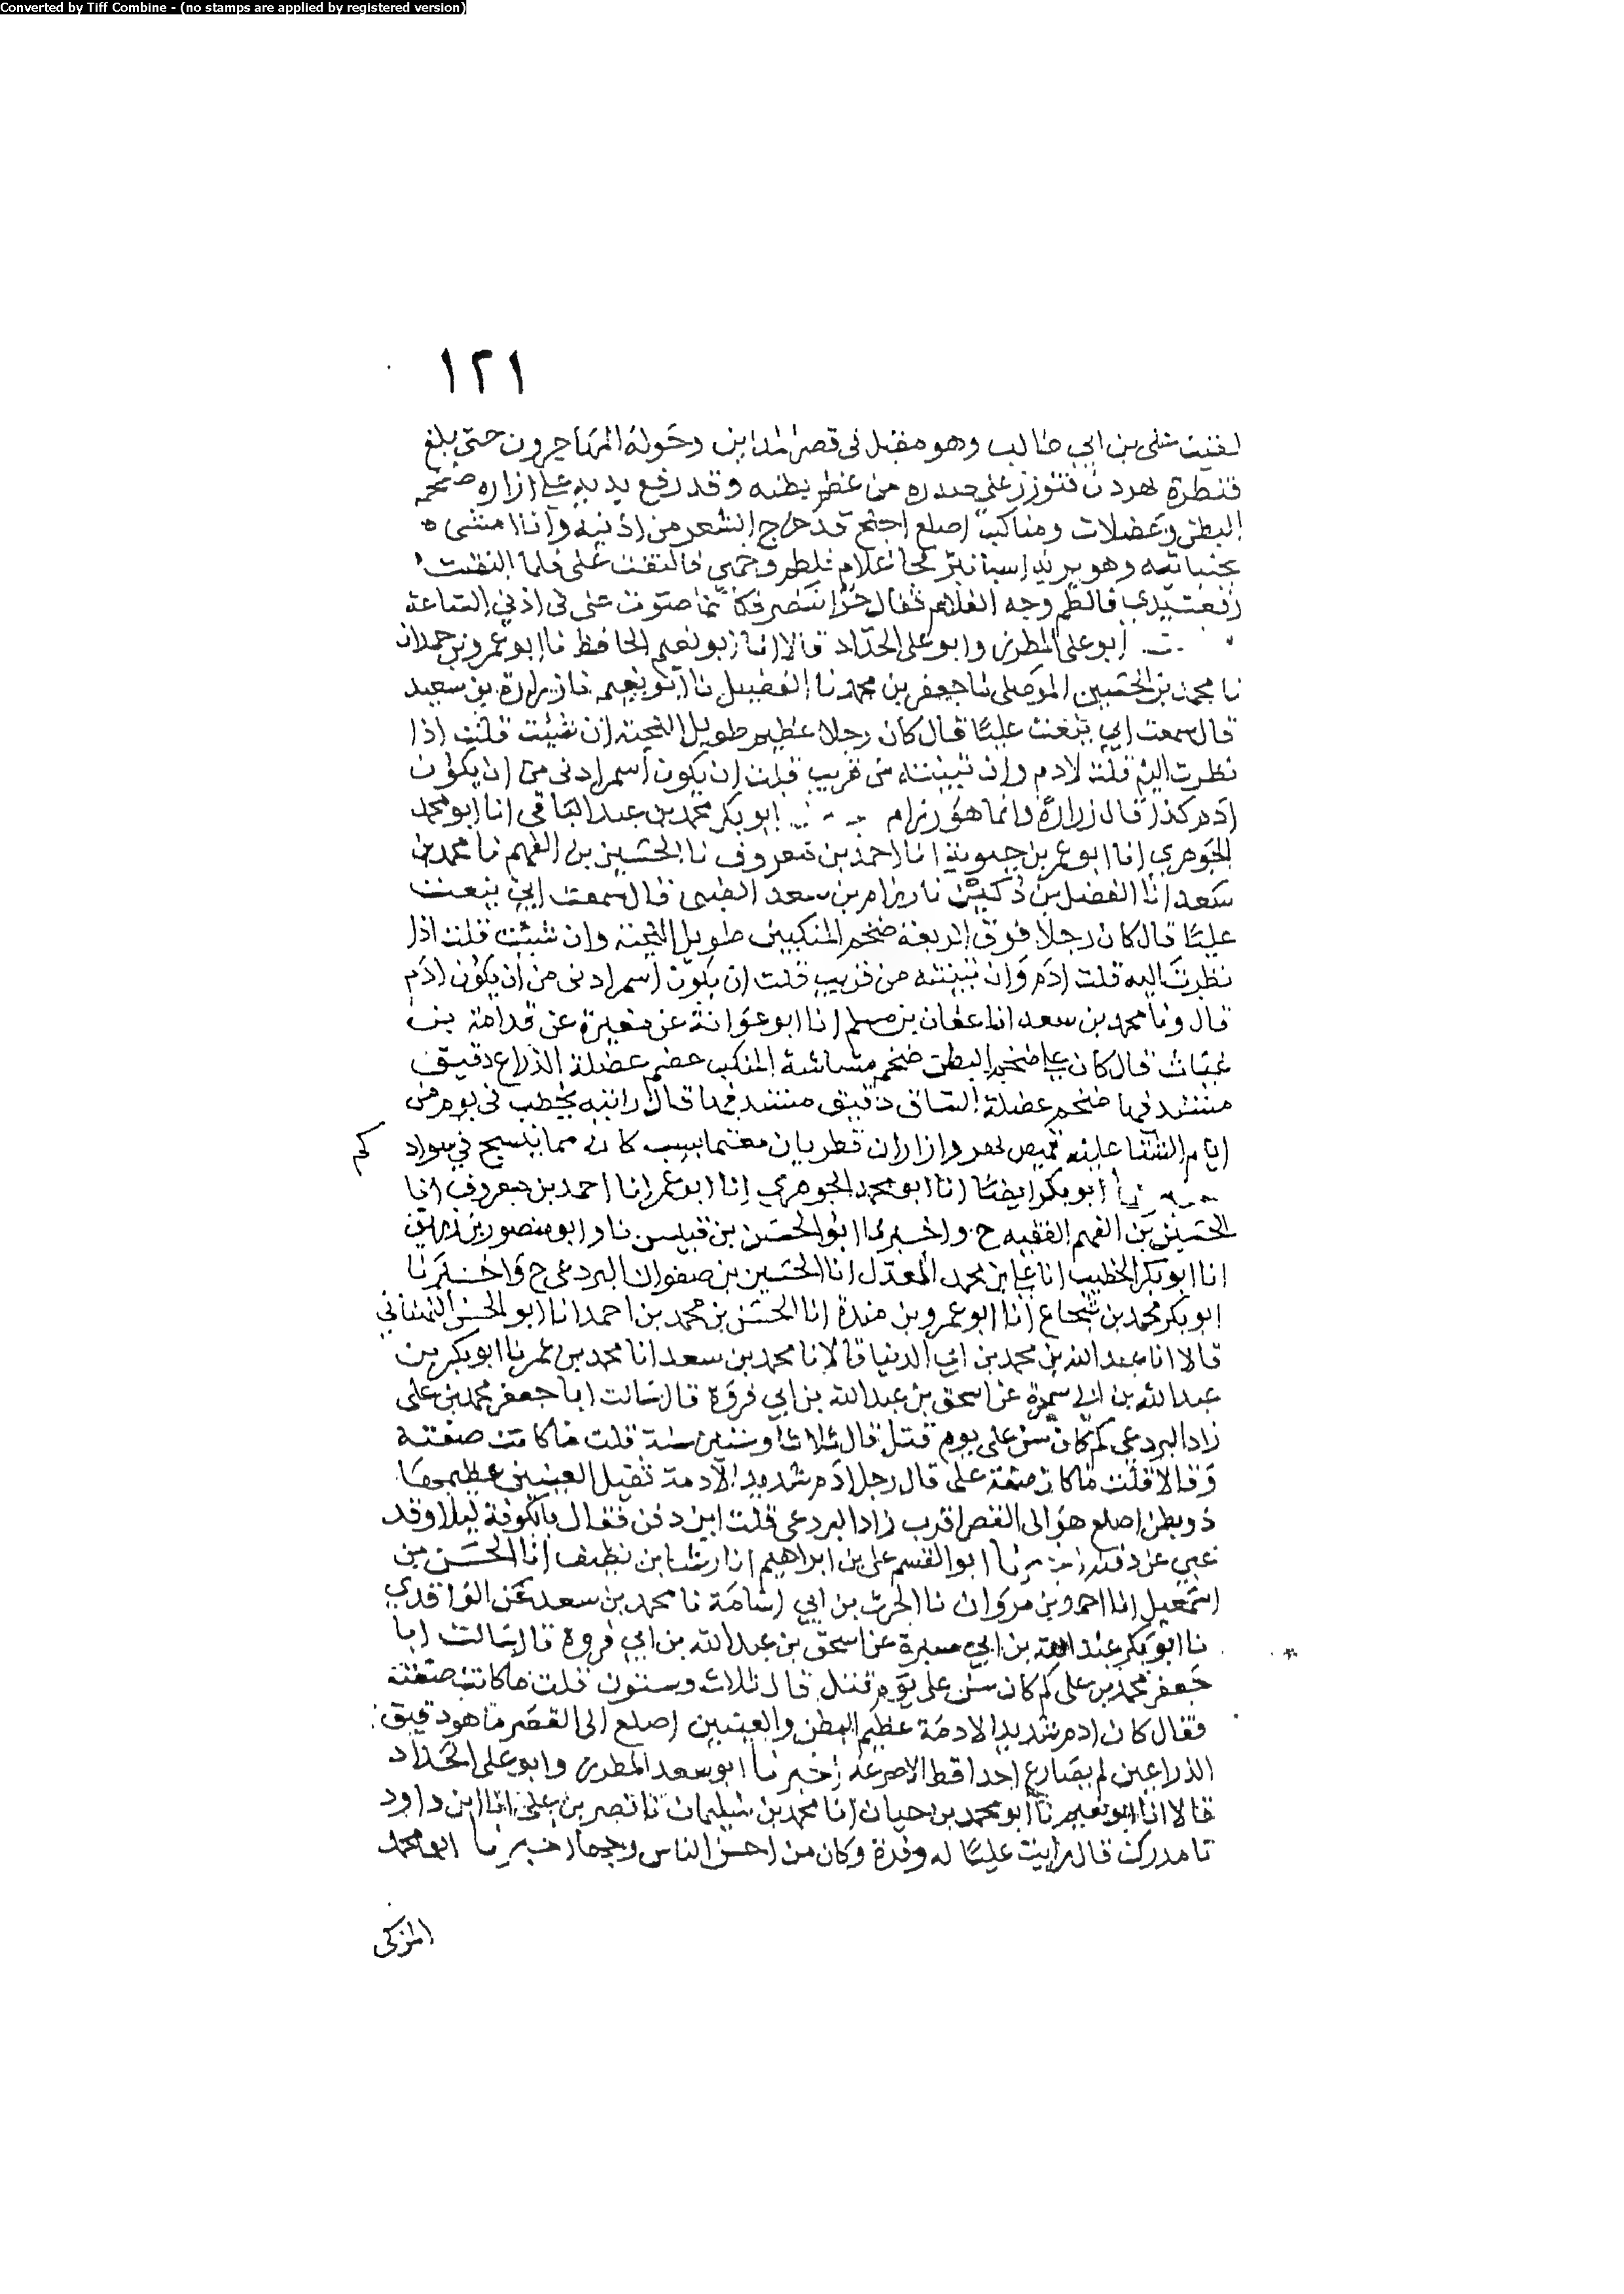 Converted by Tiff Combine - (no stamps are applied by registered version)
١٢١
لقيت علي بن ابي طالب وهو مقبل في قصر المداين وحوله المهاجرون حتى بلغ
قنطرة فتوزر على صدره من عظم بطنه وقد رفع يديه على ازاره ضخم
البطن وعضلات ومناكب اصلع اجلح قد خرج الشعر من اذنيه وانا امشي
بجنباته وهو يريد غلام فلطم وجهي فالتفت علي فلما التفت
رفعت يدي فالطم وجه الغلام فقال انتصر فكانما صوت علي في اذني الساعة
ابو علي المطرز وابو علي الحداد قالا انا ابو نعيم الحافظ نا ابو عمرو بن حمدان
نا محمد بن الحسين الموصلي نا جعفر بن محمد نا الفضيل نا ابو نعيم نا زرارة بن سعيد
قال سمعت ابي ينعت عليا قال كان رجلا عظيم طويل اللحية ان شئت قلت اذا
نظرت اليه قلت ادم وان تبينته من قريب قلت ان يكون اسمر ادنى من ان يكون
ادم كذا قال زرارة وانما هو رزام ابو بكر محمد بن عبد الباقي انا ابو محمد
الجوهري انا ابو عمر بن حيوية انا احمد بن معروف نا الحسين بن الفهم نا محمد بن
سعد انا الفضل بن دكين نا رزام بن سعد الضبي قال سمعت ابي ينعت
عليا قال كان رجلا فوق الربعة ضخم المنكبين طويل اللحية وان شئت قلت اذا
نظرت اليه قلت ادم وان تبينته من قريب قلت ان يكون اسمر ادنى من ان يكون ادم
قال ونا محمد بن سعد انا عفان بن مسلم انا ابو عوانة عن مغيرة عن قدامة بن
عتاب قال كان علي ضخم البطن ضخم مشاشة المنكب ضخم عضلة الذراع دقيق
مستدقها ضخم عضلة الساق دقيق مستدقها قال رايته يخطب في يوم من
ايام الشتا عليه قميص وازاران قطريان معتما بسب كان مما ينسج في سواد
كم
ابو بكر ايضا انا ابو محمد الجوهري انا ابو عمر انا احمد بن معروف انا
الحسين بن الفهم الفقيه ح واخبرنا ابو الحسن بن قبيس نا وابو منصور بن زريق
انا ابو بكر الخطيب انا علي بن محمد المعدل انا الحسين بن صفوان البردعي ح واخبرنا
ابو بكر محمد بن شجاع انا ابو عمرو بن مندة انا الحسن بن محمد بن احمد انا ابو الحسن اللنباني
قالا انا عبد الله بن محمد بن ابي الدنيا قالا نا محمد بن سعد انا محمد بن عمر نا ابو بكر بن
عبد الله بن ابي سبرة عن اسحق بن عبد الله بن ابي فروة قال سالت ابا جعفر محمد بن علي
زاد البردعي كم كان سن علي يوم قتل قال ثلاثا وستين سنة قلت ما كانت صفته
وقالا قلت ما كان صفة علي قال رجل ادم شديد الادمة ثقيل العينين عظيمهما
ذو بطن اصلع هو الى القصر اقرب زاد البردعي قلت اين دفن فقال بالكوفة ليلا وقد
عبي عن دفنه اخبرنا ابو القسم علي بن ابراهيم انا رشا بن نظيف انا الحسن بن
اسمعيل انا احمد بن مروان نا الحرث بن ابي اسامة نا محمد بن سعد عن الواقدي
نا ابو بكر عبد الله بن ابي سبرة عن اسحق بن عبد الله بن ابي فروة قال سالت ابا
جعفر محمد بن علي كم كان سن علي يوم قتل قال ثلاث وستون قلت ما كانت صفته
فقال كان ادم شديد الادمة عظيم البطن والعينين اصلع الى القصر ما هو دقيق
الذراعين لم يصارع احدا قط الا صرعه اخبرنا ابو سعد المطرز وابو علي الحداد
قالا انا ابو نعيم نا ابو محمد بن حيان انا محمد بن سليمان نا نصر بن علي انا ابن داود
نا مدرك قال رايت عليا له وفرة وكان من احسن الناس وجها اخبرنا ابو محمد
المزكي